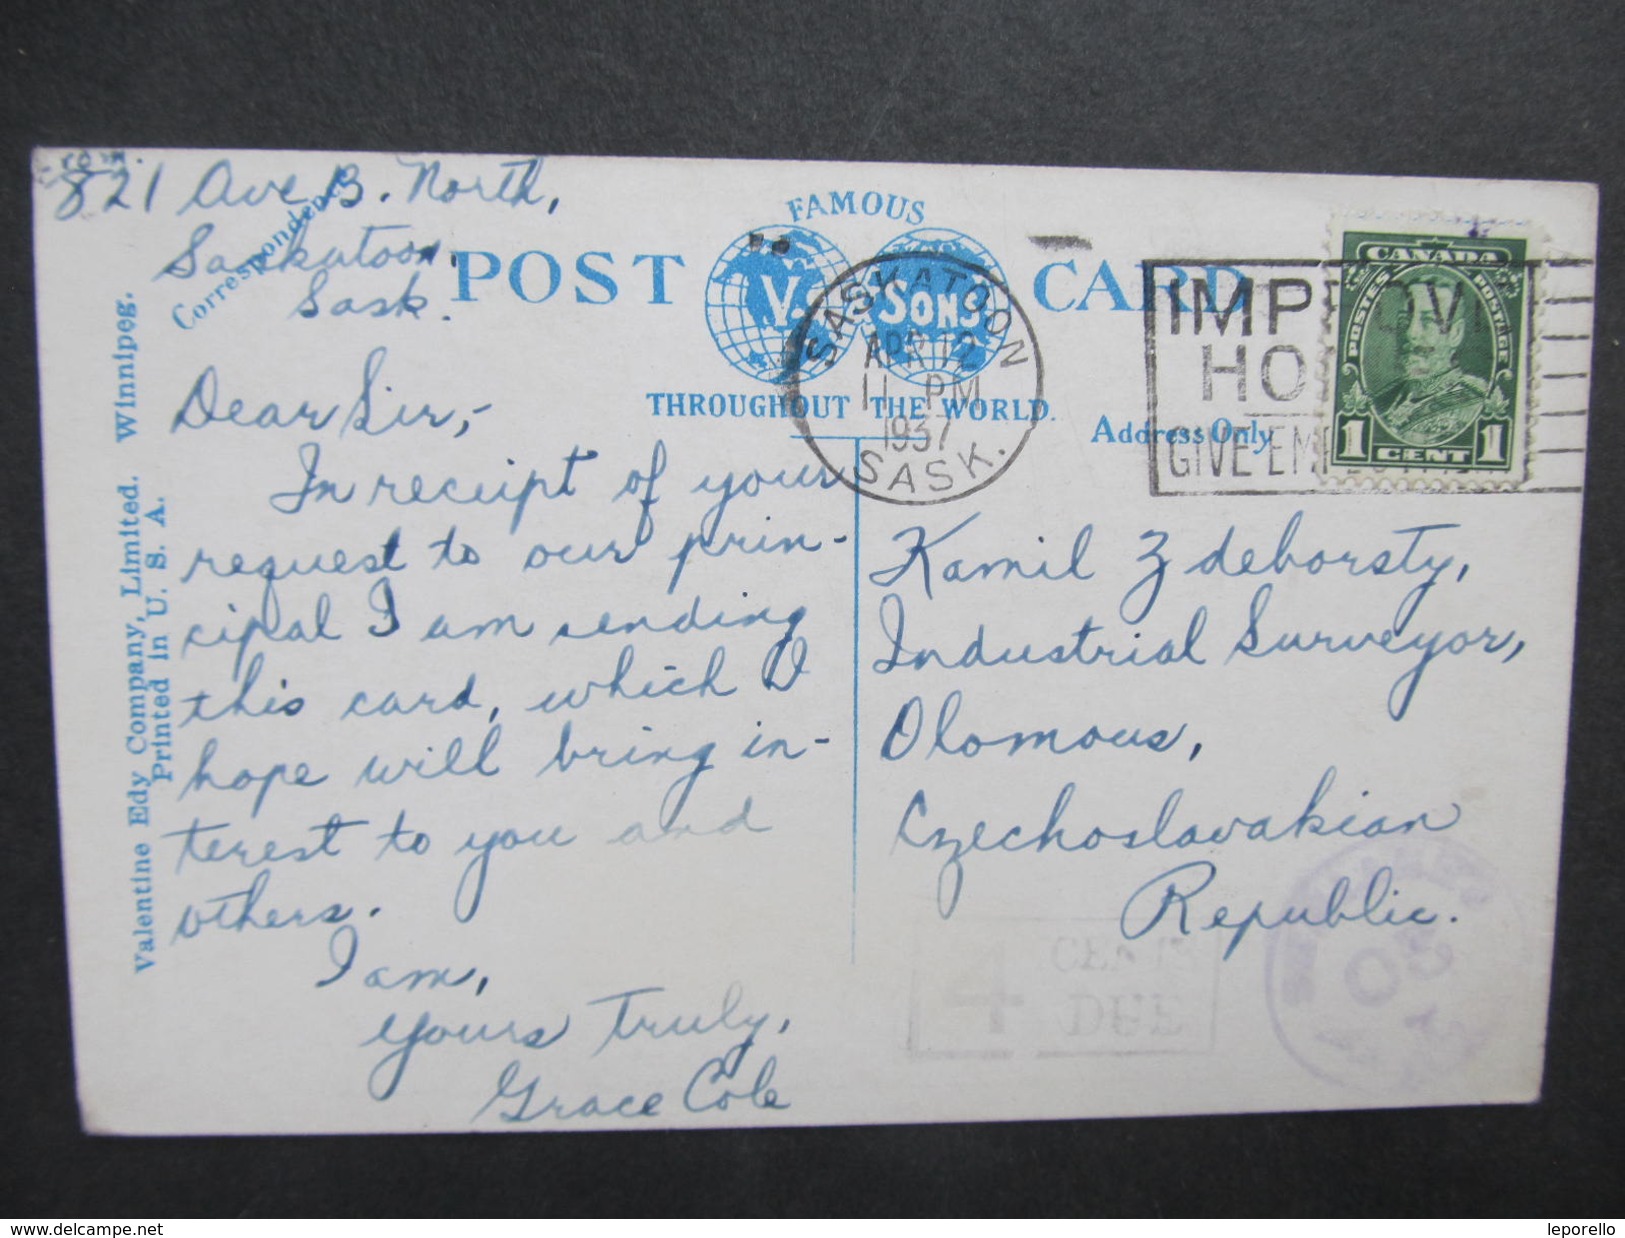 From.
821 Ave B. North,
Saskatoon,
Sask.
Correspondence
POST CARD
FAMOUS
V. & SONS
THROUGHOUT THE WORLD.
Address Only
SASKATOON
APR 12
11 PM
1937
SASK.
IMPROV
HO
GIVE EMP
CANADA
POSTES POSTAGE
1 CENT 1
Dear Sir,-
In receipt of your
request to our prin-
cipal I am sending
this card, which I
hope will bring in-
terest to you and
others.
I am,
Yours Truly,
Grace Cole
Kamil Zdeborsty,
Industrial Surveyor,
Olomous,
Czechoslavakian
Republic.
4 CENTS
DUE
Valentine Edy Company, Limited. Winnipeg.
Printed in U. S. A.
www.delcampe.net
leporello